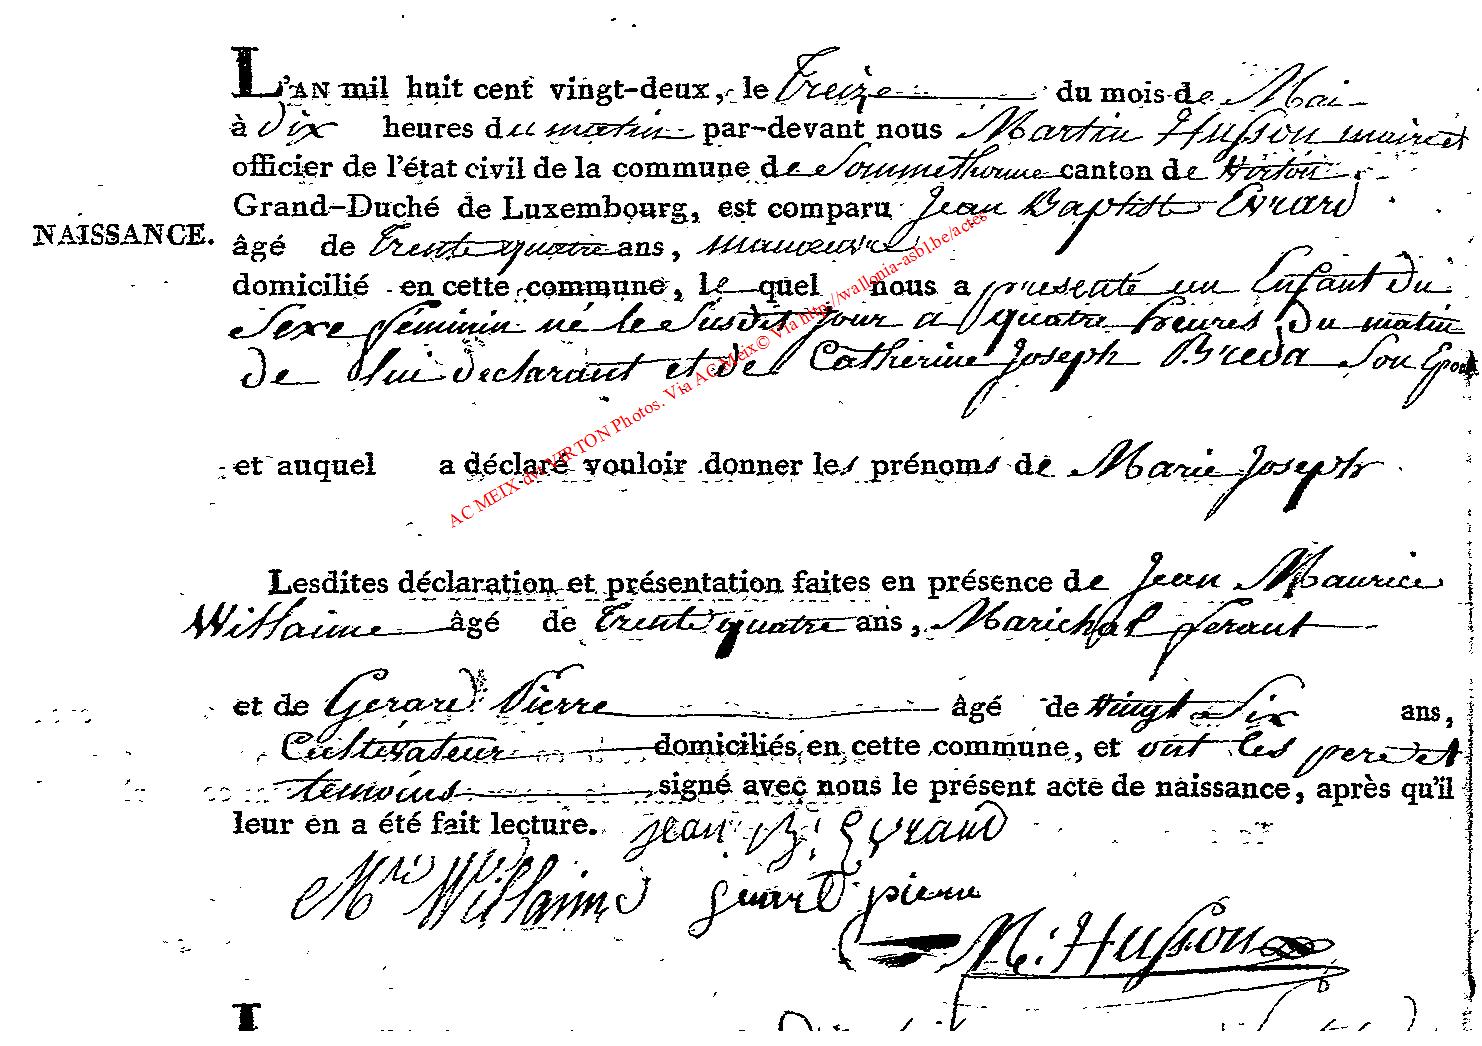 L'AN mil huit cent vingt-deux, le Treize du mois de Mai
à Dix heures du matin par-devant nous Martin Husson maire et
officier de l'état civil de la commune de Sommethonne canton de Virton
Grand-Duché de Luxembourg, est comparu Jean Baptiste Evrard
NAISSANCE.
âgé de Trente quatre ans, manœuvre
domicilié en cette commune, le quel nous a presenté un Enfant Du
Sexe féminin né le Susdit jour a quatre heures Du matin
De lui declarant et de Catherine Joseph Breda Son Epouse
et auquel a déclaré vouloir donner les prénoms de Marie Joseph
Lesdites déclaration et présentation faites en présence de Jean Maurice
Willaime âgé de Trente quatre ans, Marichal ferant
et de Gerard Pierre âgé de Vingt Six ans,
Cultivateur domiciliés en cette commune, et ont les pere et
temoins signé avec nous le présent acte de naissance, après qu'il
leur en a été fait lecture. jean B. Evrard
Mce Willaime gerard pierre
M. Husson
AC MEIX dvt VIRTON Photos. Via AC Meix© Via http://wallonia-asbl.be/actes
L